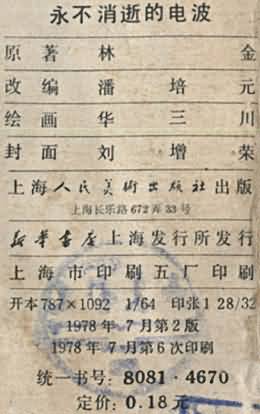 永不消逝的电波
原著 林金
改编 潘培元
绘画 华三川
封面 刘增荣
上海人民美術出版社出版
上海长乐路672弄33号
新华书店上海发行所发行
上海市印刷五厂印刷
开本787×1092 1/64 印张1 28/32
1978年7月第2版
1978年7月第6次印刷
统一书号: 8081·4670
定价: 0.18元